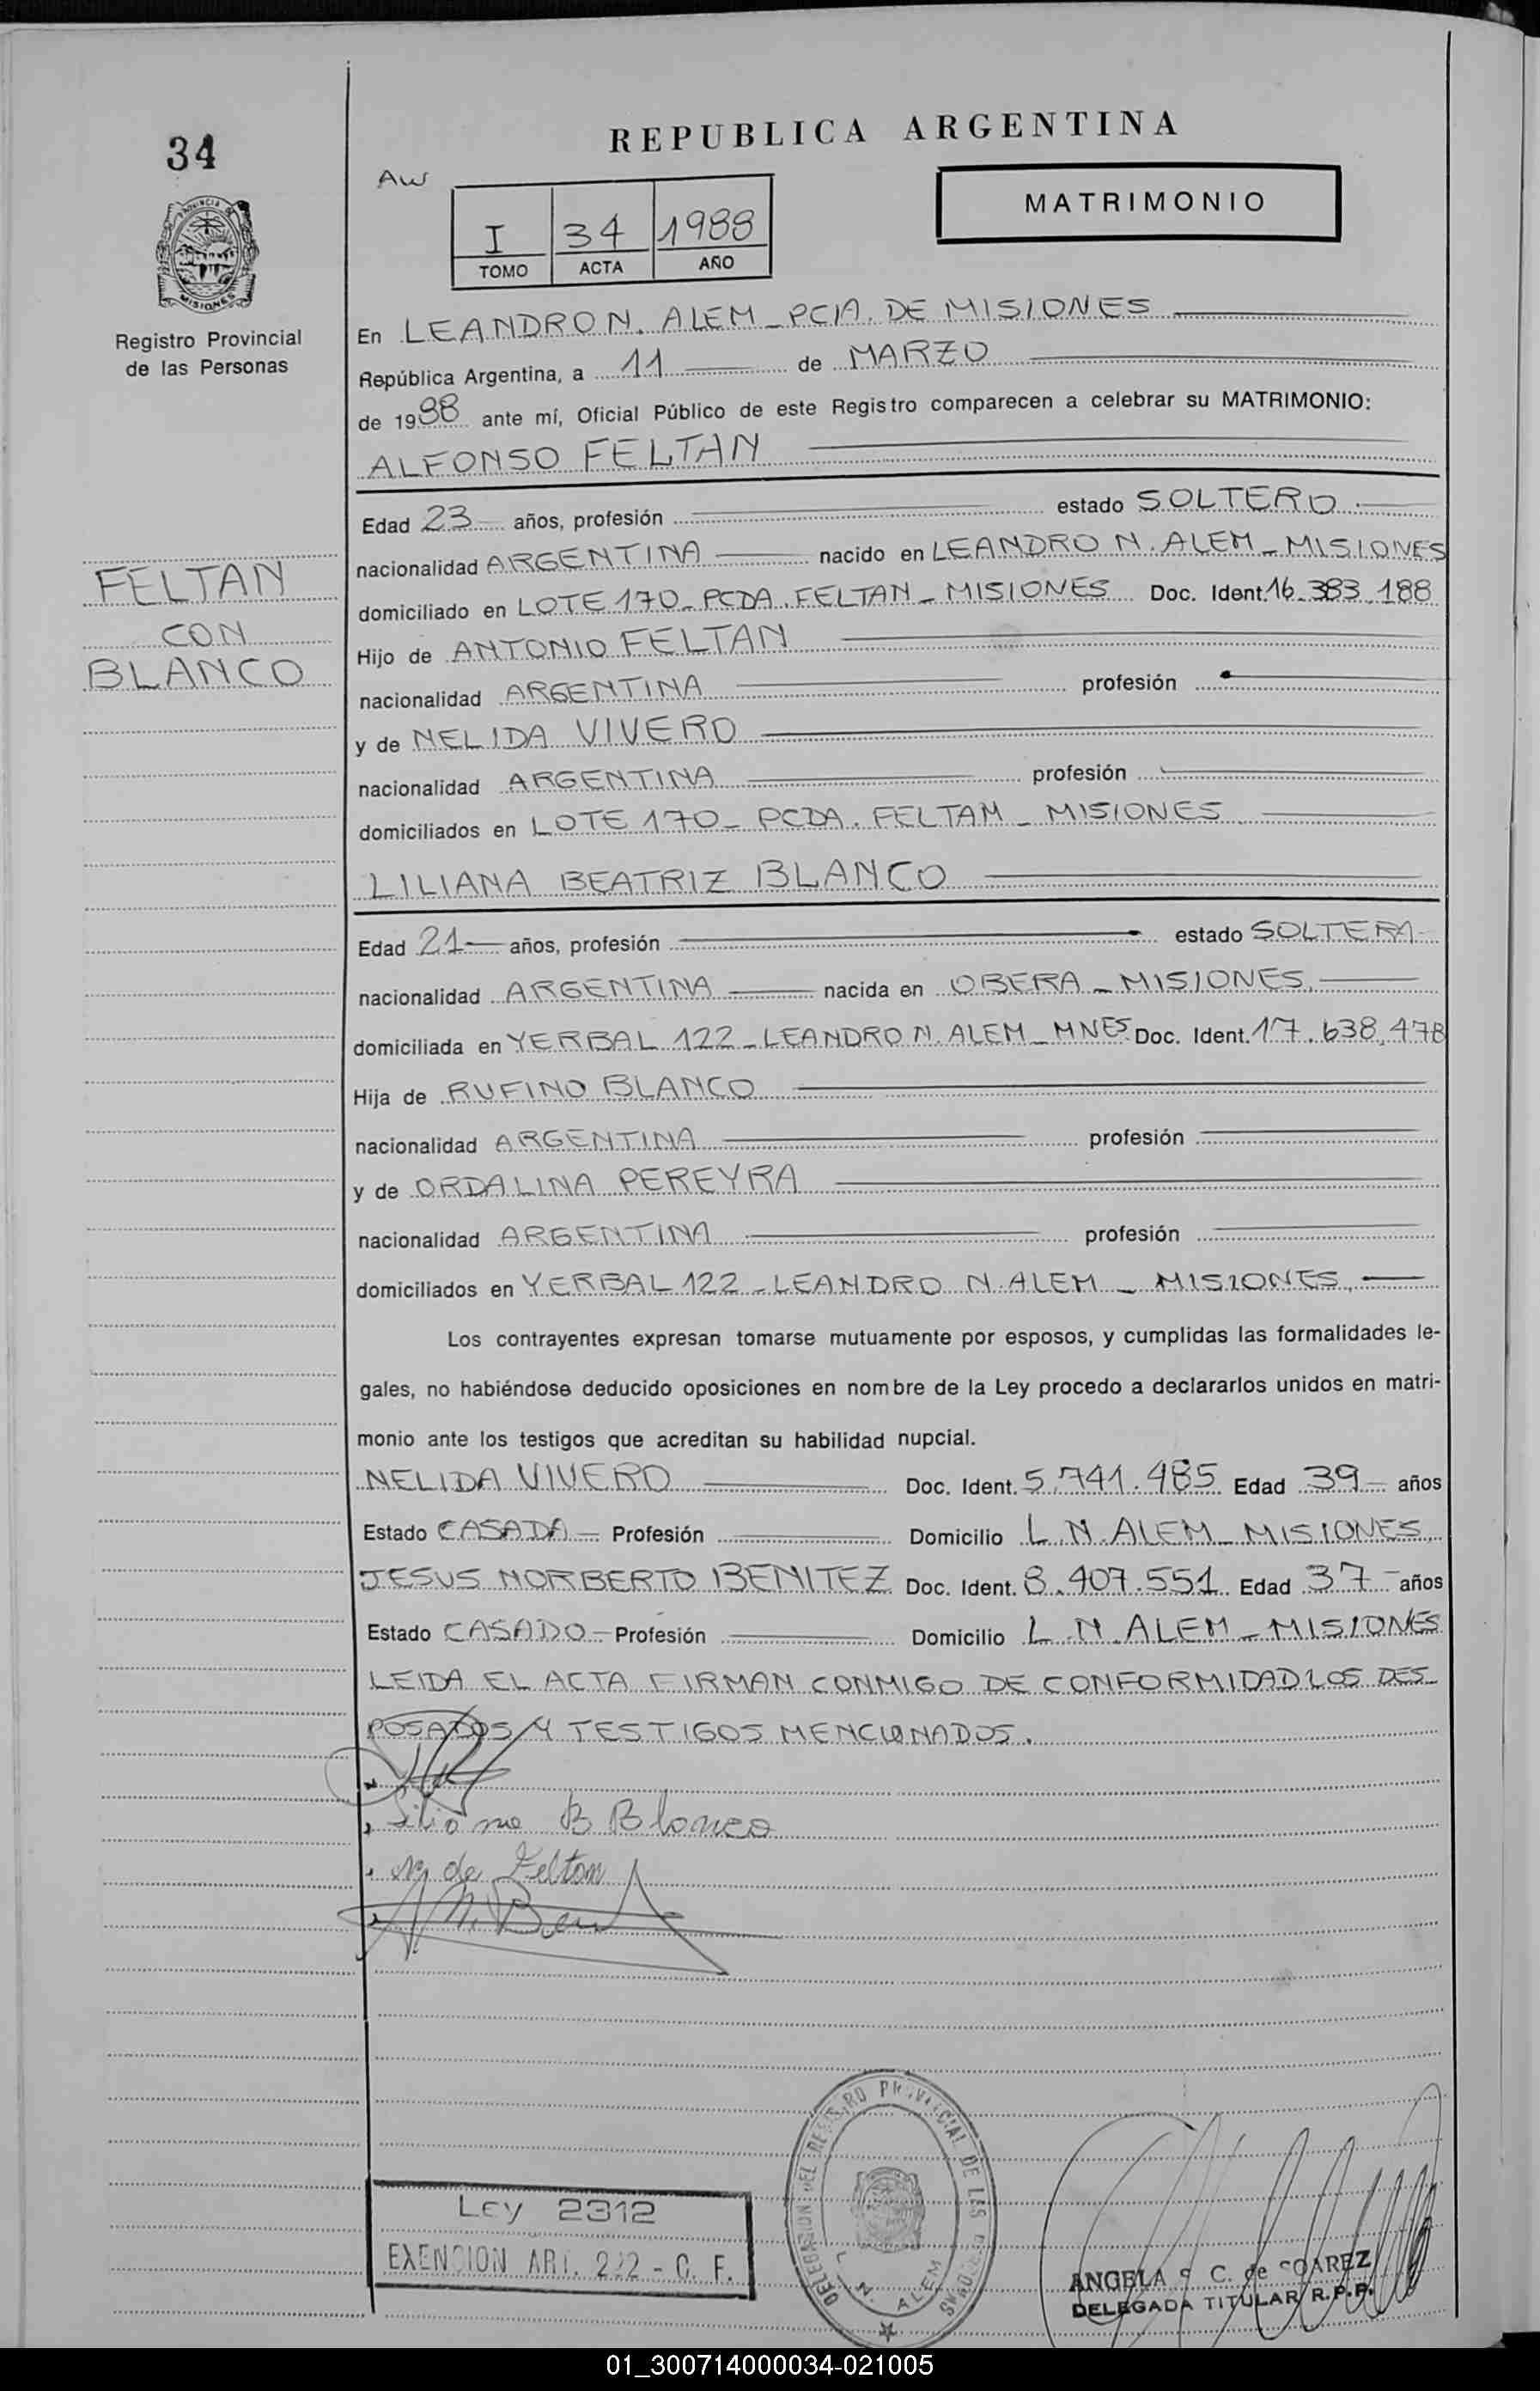 34
REPUBLICA ARGENTINA
AW
MATRIMONIO
I 34 1988
TOMO ACTA AÑO
PROVINCIA DE
MISIONES
Registro Provincial
de las Personas
En LEANDRO N. ALEM - PCIA. DE MISIONES
República Argentina, a 11 de MARZO
de 1988 ante mí, Oficial Público de este Registro comparecen a celebrar su MATRIMONIO:
ALFONSO FELTAN
Edad 23 años, profesión estado SOLTERO
FELTAN
CON
BLANCO
nacionalidad ARGENTINA nacido en LEANDRO N. ALEM - MISIONES
domiciliado en LOTE 170 - PCDA. FELTAN - MISIONES Doc. Ident. 16.383.188
Hijo de ANTONIO FELTAN
nacionalidad ARGENTINA profesión
y de NELIDA VIVERO
nacionalidad ARGENTINA profesión
domiciliados en LOTE 170 - PCDA. FELTAM - MISIONES
LILIANA BEATRIZ BLANCO
Edad 21 años, profesión estado SOLTERA
nacionalidad ARGENTINA nacida en OBERA - MISIONES.
domiciliada en YERBAL 122 - LEANDRO N. ALEM - MNES Doc. Ident. 17.638.478
Hija de RUFINO BLANCO
nacionalidad ARGENTINA profesión
y de ORDALINA PEREYRA
nacionalidad ARGENTINA profesión
domiciliados en YERBAL 122 - LEANDRO N. ALEM - MISIONES.
Los contrayentes expresan tomarse mutuamente por esposos, y cumplidas las formalidades le-
gales, no habiéndose deducido oposiciones en nombre de la Ley procedo a declararlos unidos en matri-
monio ante los testigos que acreditan su habilidad nupcial.
NELIDA VIVERO Doc. Ident. 5.741.485 Edad 39 años
Estado CASADA Profesión Domicilio L.N. ALEM - MISIONES.
JESUS NORBERTO BENITEZ Doc. Ident. 8.407.551 Edad 37 años
Estado CASADO Profesión Domicilio L.N. ALEM - MISIONES
LEIDA EL ACTA FIRMAN CONMIGO DE CONFORMIDAD LOS DES
POSADOS Y TESTIGOS MENCIONADOS.
Liliana B Blanco
N de Feltan
DELEGACION DEL REGISTRO PROVINCIAL DE LAS PERSONAS
L. N. ALEM
Ley 2312
EXENCION ART. 222 - C. F.
ANGELA C. de SOAREZ
DELEGADA TITULAR R.P.P.
01_300714000034-021005